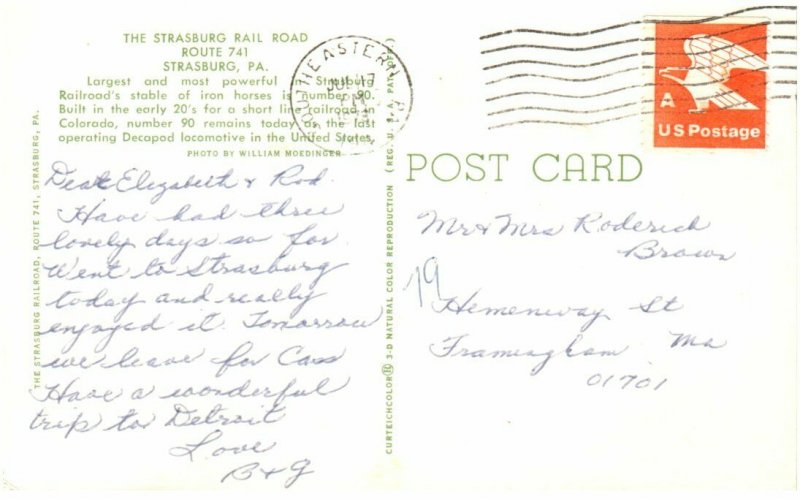 THE STRASBURG RAIL ROAD
ROUTE 741
STRASBURG, PA.
Largest and most powerful in Strasburg
Railroad's stable of iron horses is number 90.
Built in the early 20's for a short line railroad in
Colorado, number 90 remains today as the last
operating Decapod locomotive in the United States.
PHOTO BY WILLIAM MOEDINGER
Dear Elizabeth & Rod
Have had three
lovely days so far.
Went to Strasburg
today and really
engoyed it. Tomorrow
we leave for
Have a wonderful
trip to Detroit
Love
B & G
THE STRASBURG RAILROAD, ROUTE 741, STRASBURG, PA.
CURTEICHCOLOR® 3-D NATURAL COLOR REPRODUCTION (REG. U.S.A. PAT. O
SOUTHEASTERN PA
JUL 17
A
US Postage
POST CARD
Mr & Mrs Roderick
Brown
79
Hemenway St
Framingham Ma
01701